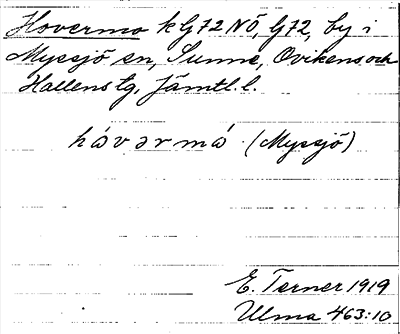 Hovermo k G72 NÖ, G72, by i
Myssjö sn, Sunne, Ovikens och
Hallens tg, Jämtl. l.
hávərmá (Myssjö)
E. Terner 1919
Ulma 463:10